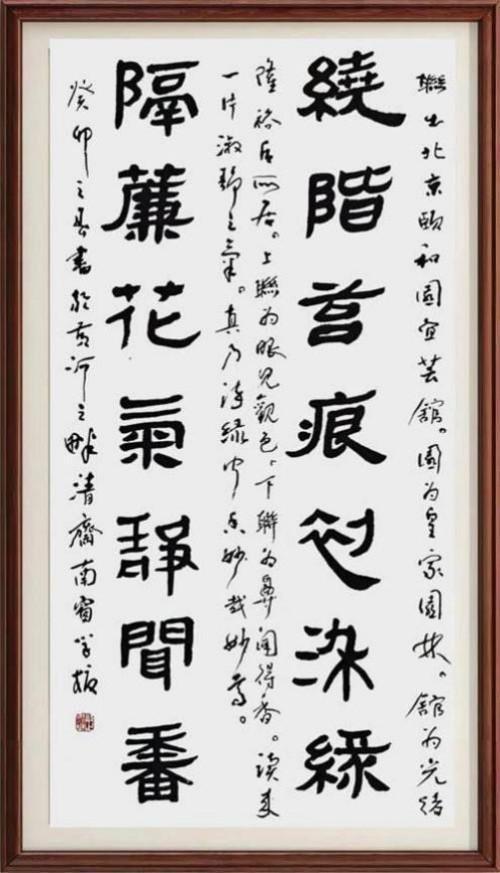 繞階苔痕初染綠
隔簾花氣靜聞香
聯出北京頤和園宜芸館。園为皇家園林。館为光绪
隆裕后所居。上聯为眼見觀色，下聯为鼻闻得香。读来
一片淑靜之氣。真乃诗缘中妙哉妙焉。
癸卯之春書於黄河之畔清齋南窗学振